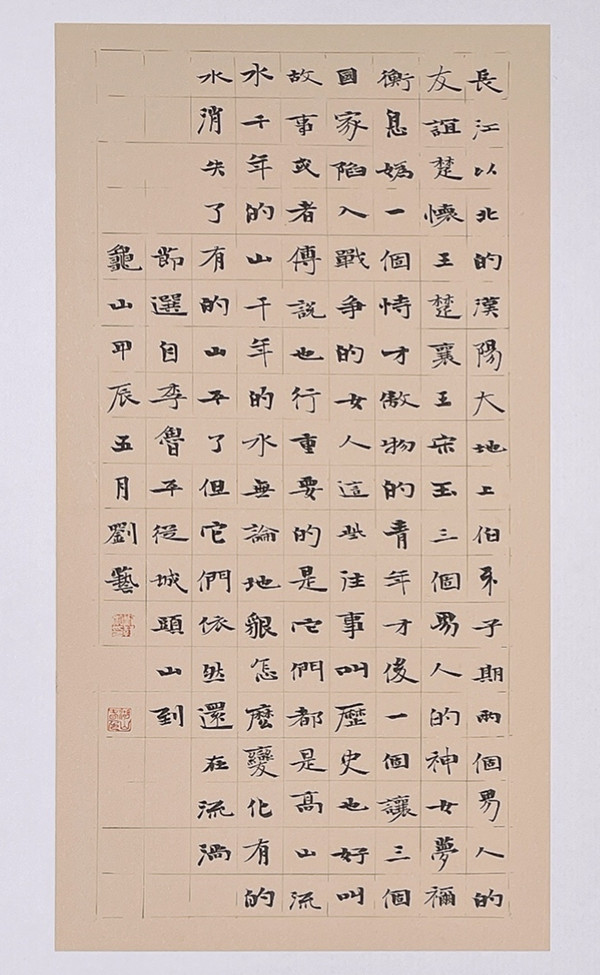 長江以北的漢陽大地上伯牙子期兩個男人的
友誼楚懷王楚襄王宋玉三個男人的神女夢禰
衡息媯一個恃才傲物的青年才俊一個讓三個
國家陷入戰爭的女人這些往事叫歷史也好叫
故事或者傳説也行重要的是它們都是高山流
水千年的山千年的水無論地貌怎麼變化有的
水消失了有的山平了但它們依然還在流淌
節選自李魯平從城頭山到
龜山甲辰五月劉藝